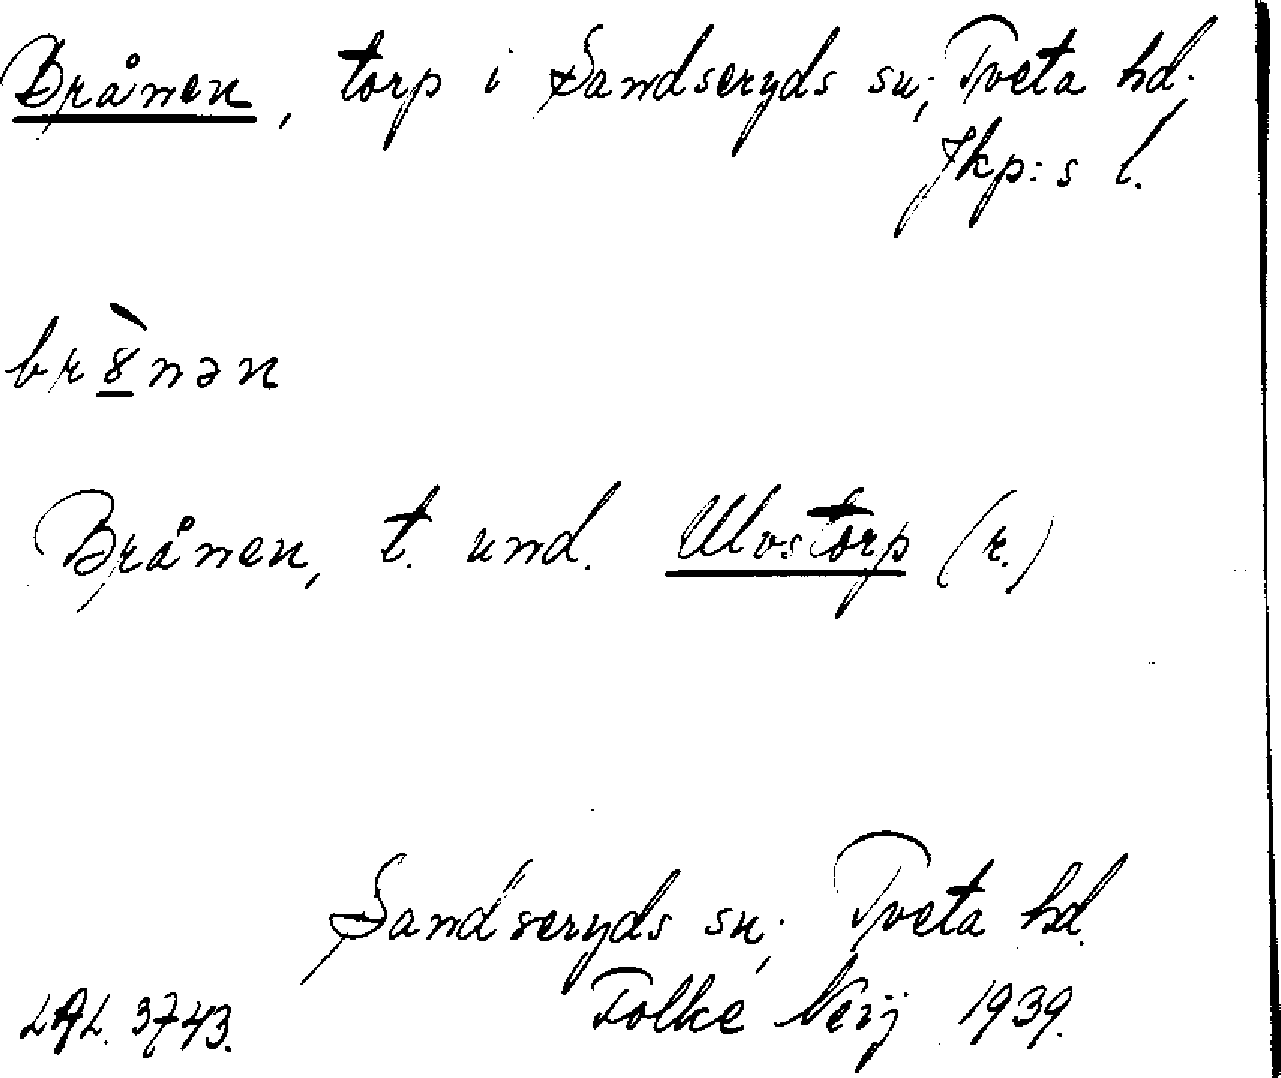 Brånen, torp i Sandseryds sn, Tveta hd.
Jkp:s l.
br8̲̀nən
Brånen, t. und. Ulvstorp (r.)
Sandseryds sn, Tveta hd.
LAL. 3743. Folke Nerj 1939.